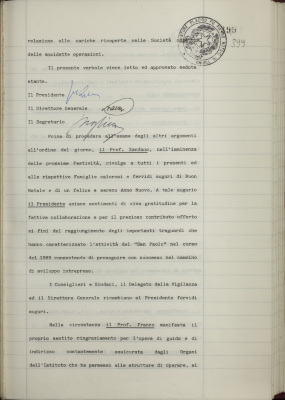 99
599
relazione alle cariche ricoperte nelle Società
delle suddette operazioni.
Il presente verbale viene letto ed approvato seduta
stante.
Il Presidente
Il Direttore Generale
Il Segretario
Prima di procedere all'esame degli altri argomenti
all'ordine del giorno, il Prof. Zandano, nell'imminenza
delle prossime Festività, rivolge a tutti i presenti ed
alle rispettive Famiglie calorosi e fervidi auguri di Buon
Natale e di un felice e sereno Anno Nuovo. A tale augurio
il Presidente unisce sentimenti di viva gratitudine per la
fattiva collaborazione e per il prezioso contributo offerto
ai fini del raggiungimento degli importanti traguardi che
hanno caratterizzato l'attività del "San Paolo" nel corso
del 1988 consentendo di proseguire con successo nel cammino
di sviluppo intrapreso.
I Consiglieri e Sindaci, il Delegato della Vigilanza
ed il Direttore Generale ricambiano al Presidente fervidi
auguri.
Nella circostanza il Prof. Franco manifesta il
proprio sentito ringraziamento per l'opera di guida e di
indirizzo costantemente assicurata dagli Organi
dell'Istituto che ha permesso alle strutture di operare, al